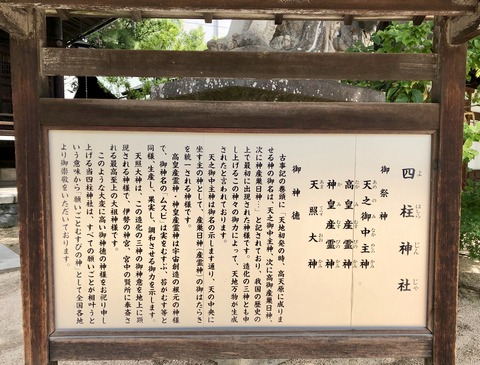 四柱神社
よはしらじんじゃ
御祭神
天之御中主神
高皇産霊神
神皇産霊神
天照大神
御神徳
古事記の巻頭に「天地初発の時、高天原に成りま
せる神の御名は、天之御中主神、次に高御産巣日神、
次に神産巣日神…」と記されており、我国の歴史の
上で最初に出現された神様です。造化の三神とも申
し上げるこの神々の御力によって、天地万物が生成
されたと言われております。
天之御中主神は御名の示します通り、天の中央に
坐す主の神として、産巣日神(産霊神)の御はたらき
を統一される神様です。
高皇産霊神・神皇産霊神は宇宙創造の根元の神様
で、御神名の「ムスビ」は実をむすぶ、苔がむす等と
同様、生産し、果実し、調和させる御力を示します。
天照大神は、この造化の三神の御神意を地上に顕
現される神様で、伊勢の神宮、宮中の賢所に奉斎さ
れる最高至上の大祖神様です。
このような大変に高い御神徳の神様をお祀り申し
上げる当四柱神社は、すべての願いごとが相叶うと
いう意味から「願いごとむすびの神」として全国各地
より御崇敬をいただいております。